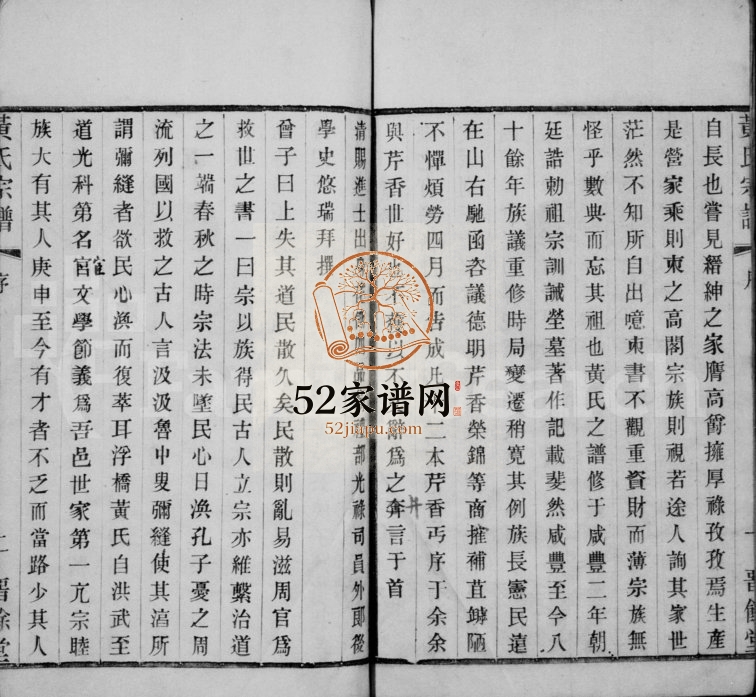 黃氏宗譜
序
一
晉餘堂
自長也嘗見縉紳之家膺高爵擁厚祿孜孜焉生產
是營家乘則東之高閣宗族則視若途人詢其家世
茫然不知所自出噫東書不觀重資財而薄宗族無
怪乎數典而忘其祖也黃氏之譜修于咸豐二年朝
廷誥勅祖宗訓誡塋墓著作記載斐然咸豐至今八
十餘年族議重修時局變遷稍寬其例族長憲民遠
在山右馳函咨議德明芹香榮錦等商搉補苴罅陋
不憚煩勞四月而告成 二本芹香丐序于余余
與芹香世好 不 以不 辭爲之弁言于首
清賜進士出 部光祿司員外郎後
學史悠瑞拜撰
曾子曰上失其道民散久矣民散則亂易滋周官爲
救世之書一曰宗以族得民古人立宗亦維繫治道
之一端春秋之時宗法未墜民心日渙孔子憂之周
流列國以救之古人言汲汲魯中叟彌縫使其湻所
謂彌縫者欲民心渙而復萃耳浮橋黃氏自洪武至
道光科第名宦文學節義爲吾邑世家第一亢宗睦
宦
族大有其人庚申至今有才者不乏而當路少其人
黃氏宗譜
序
二
晉餘堂
52家谱网
52jiapu.com